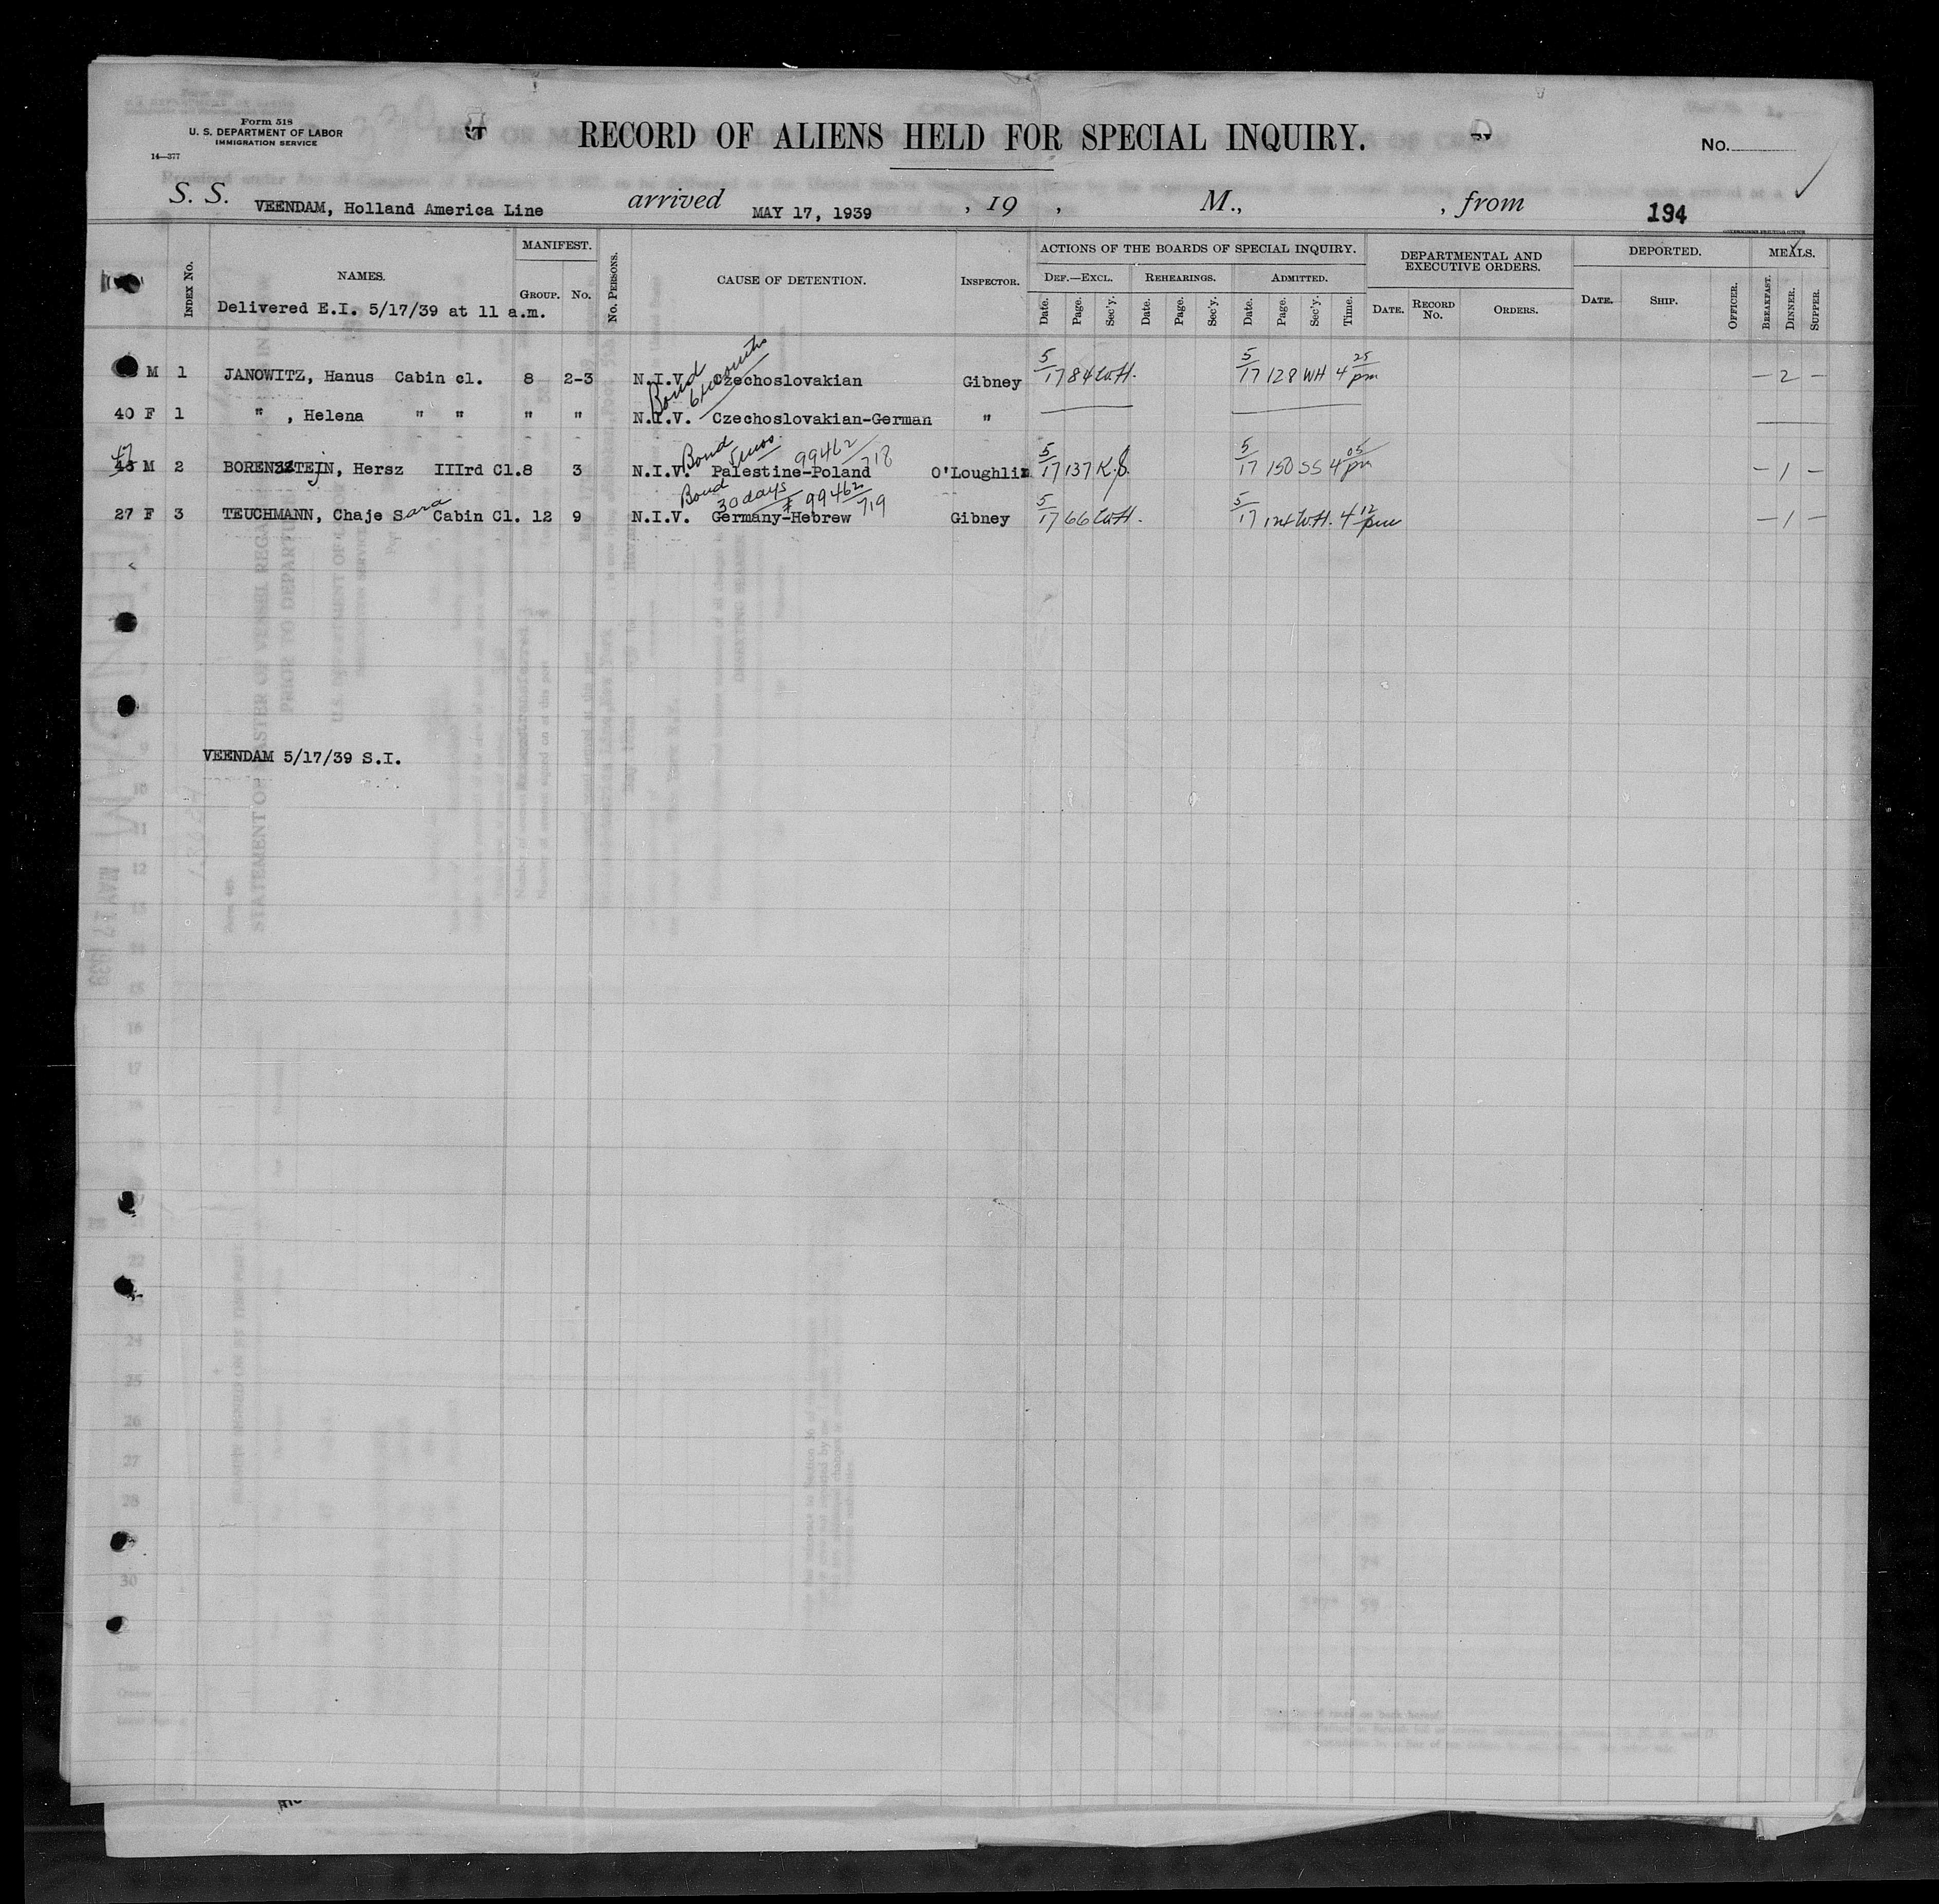 Form 518
U. S. DEPARTMENT OF LABOR
IMMIGRATION SERVICE
14—377
RECORD OF ALIENS HELD FOR SPECIAL INQUIRY.
No.
S. S. VEENDAM, Holland America Line arrived MAY 17, 1939 , 19 , M., , from 194
INDEX No. NAMES. MANIFEST. GROUP. No. No. PERSONS. CAUSE OF DETENTION. INSPECTOR. ACTIONS OF THE BOARDS OF SPECIAL INQUIRY. DEF.—EXCL. Date. Page. Sec'y. REHEARINGS. Date. Page. Sec'y. ADMITTED. Date. Page. Sec'y. Time. DEPARTMENTAL AND EXECUTIVE ORDERS. DATE. RECORD No. ORDERS. DEPORTED. DATE. SHIP. OFFICER. MEALS. BREAKFAST. DINNER. SUPPER.
Delivered E.I. 5/17/39 at 11 a.m.
Bond 6 months
M 1 JANOWITZ, Hanus Cabin cl. 8 2-3 N.I.V. Czechoslovakian Gibney 5/17 84 WH. 5/17 128 WH 4 25 pm — 2 —
40 F 1 " , Helena " " " " N.I.V. Czechoslovakian-German "
Bond 5 mos. 99462/718
47 M 2 BORENSZTEJN, Hersz IIIrd Cl. 8 3 N.I.V. Palestine-Poland O'Loughlin 5/17 137 K.S. 5/17 150 SS 4 05 pm — 1 —
Bond 30 days # 99462/719
27 F 3 TEUCHMANN, Chaje Sara Cabin Cl. 12 9 N.I.V. Germany-Hebrew Gibney 5/17 66 WH. 5/17 124 WH. 4 12 pm — 1 —
VEENDAM 5/17/39 S.I.